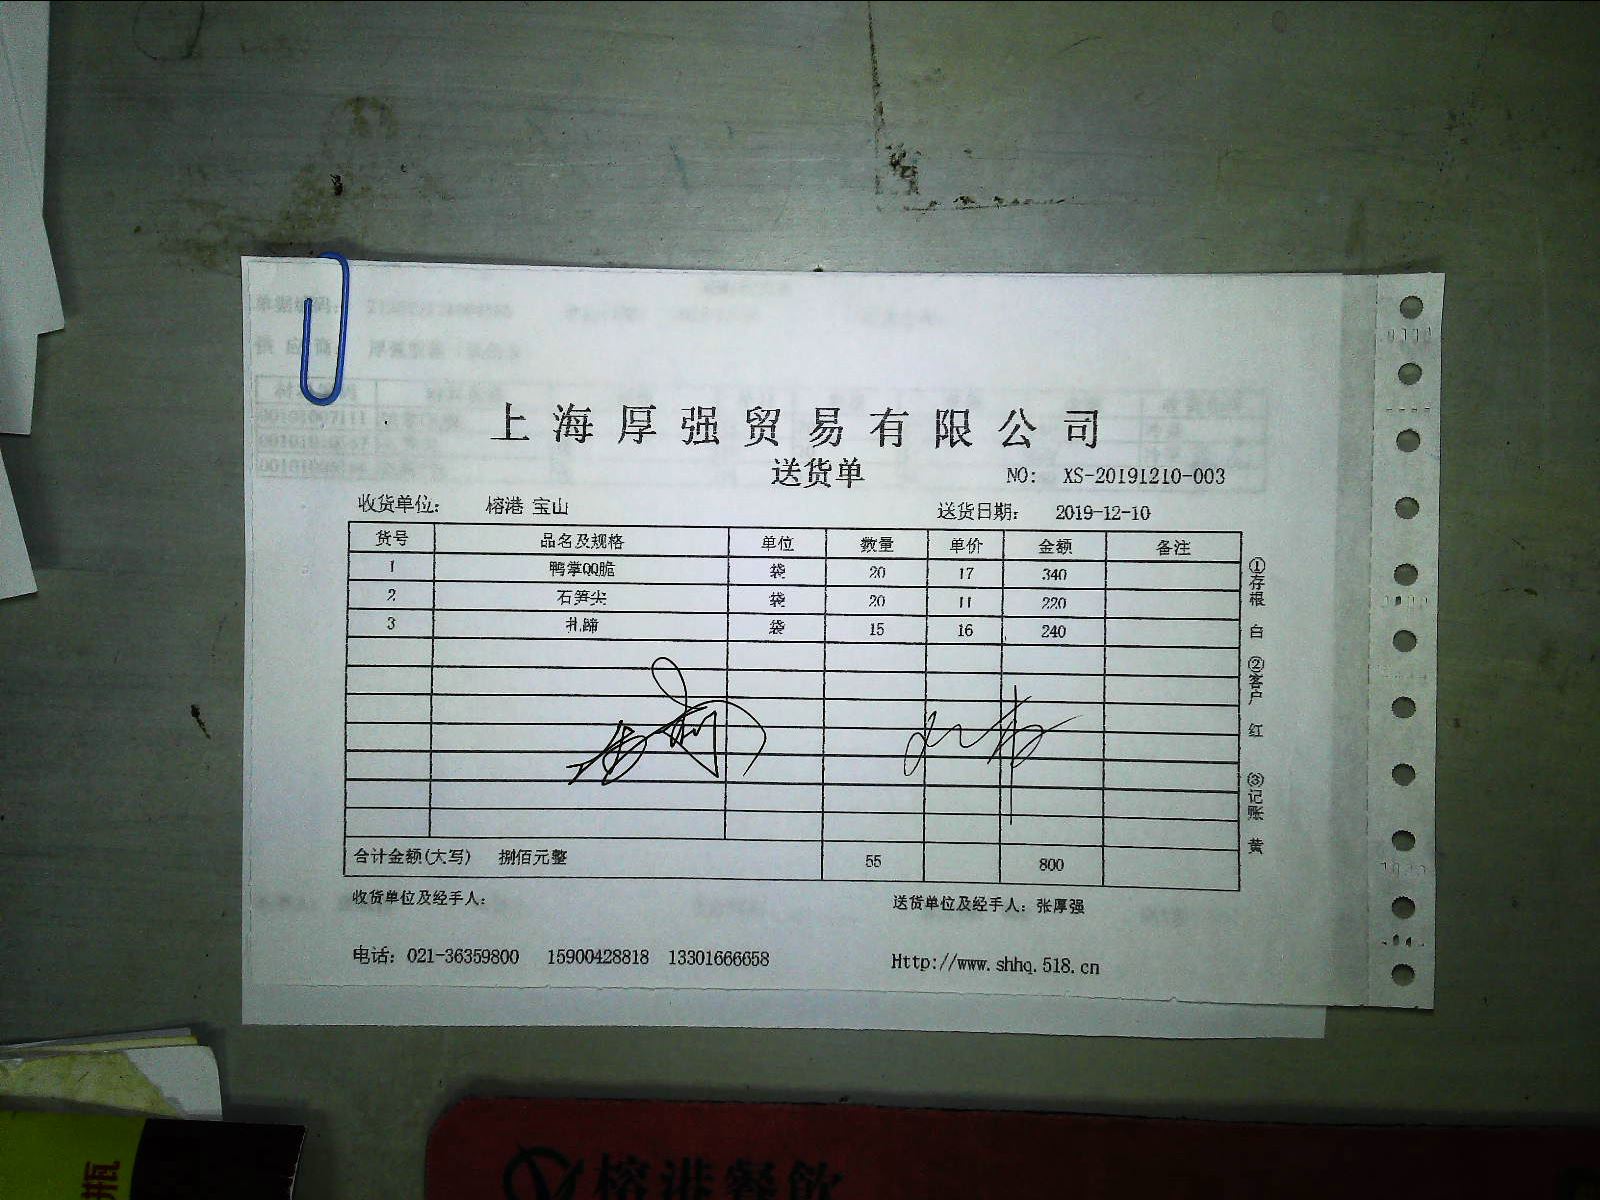 上海厚强贸易有限公司
送货单 NO: XS-20191210-003
收货单位: 榕港 宝山 送货日期: 2019-12-10
货号 品名及规格 单位 数量 单价 金额 备注
1 鸭掌QQ脆 袋 20 17 340
2 石笋尖 袋 20 11 220
3 扎蹄 袋 15 16 240
合计金额(大写) 捌佰元整 55 800
收货单位及经手人: 送货单位及经手人: 张厚强
电话: 021-36359800 15900428818 13301666658 Http://www.shhq.518.cn
①存根 白 ②客户 红 ③记账 黄
单据编码:
供应商:
榕港餐飲
瓶